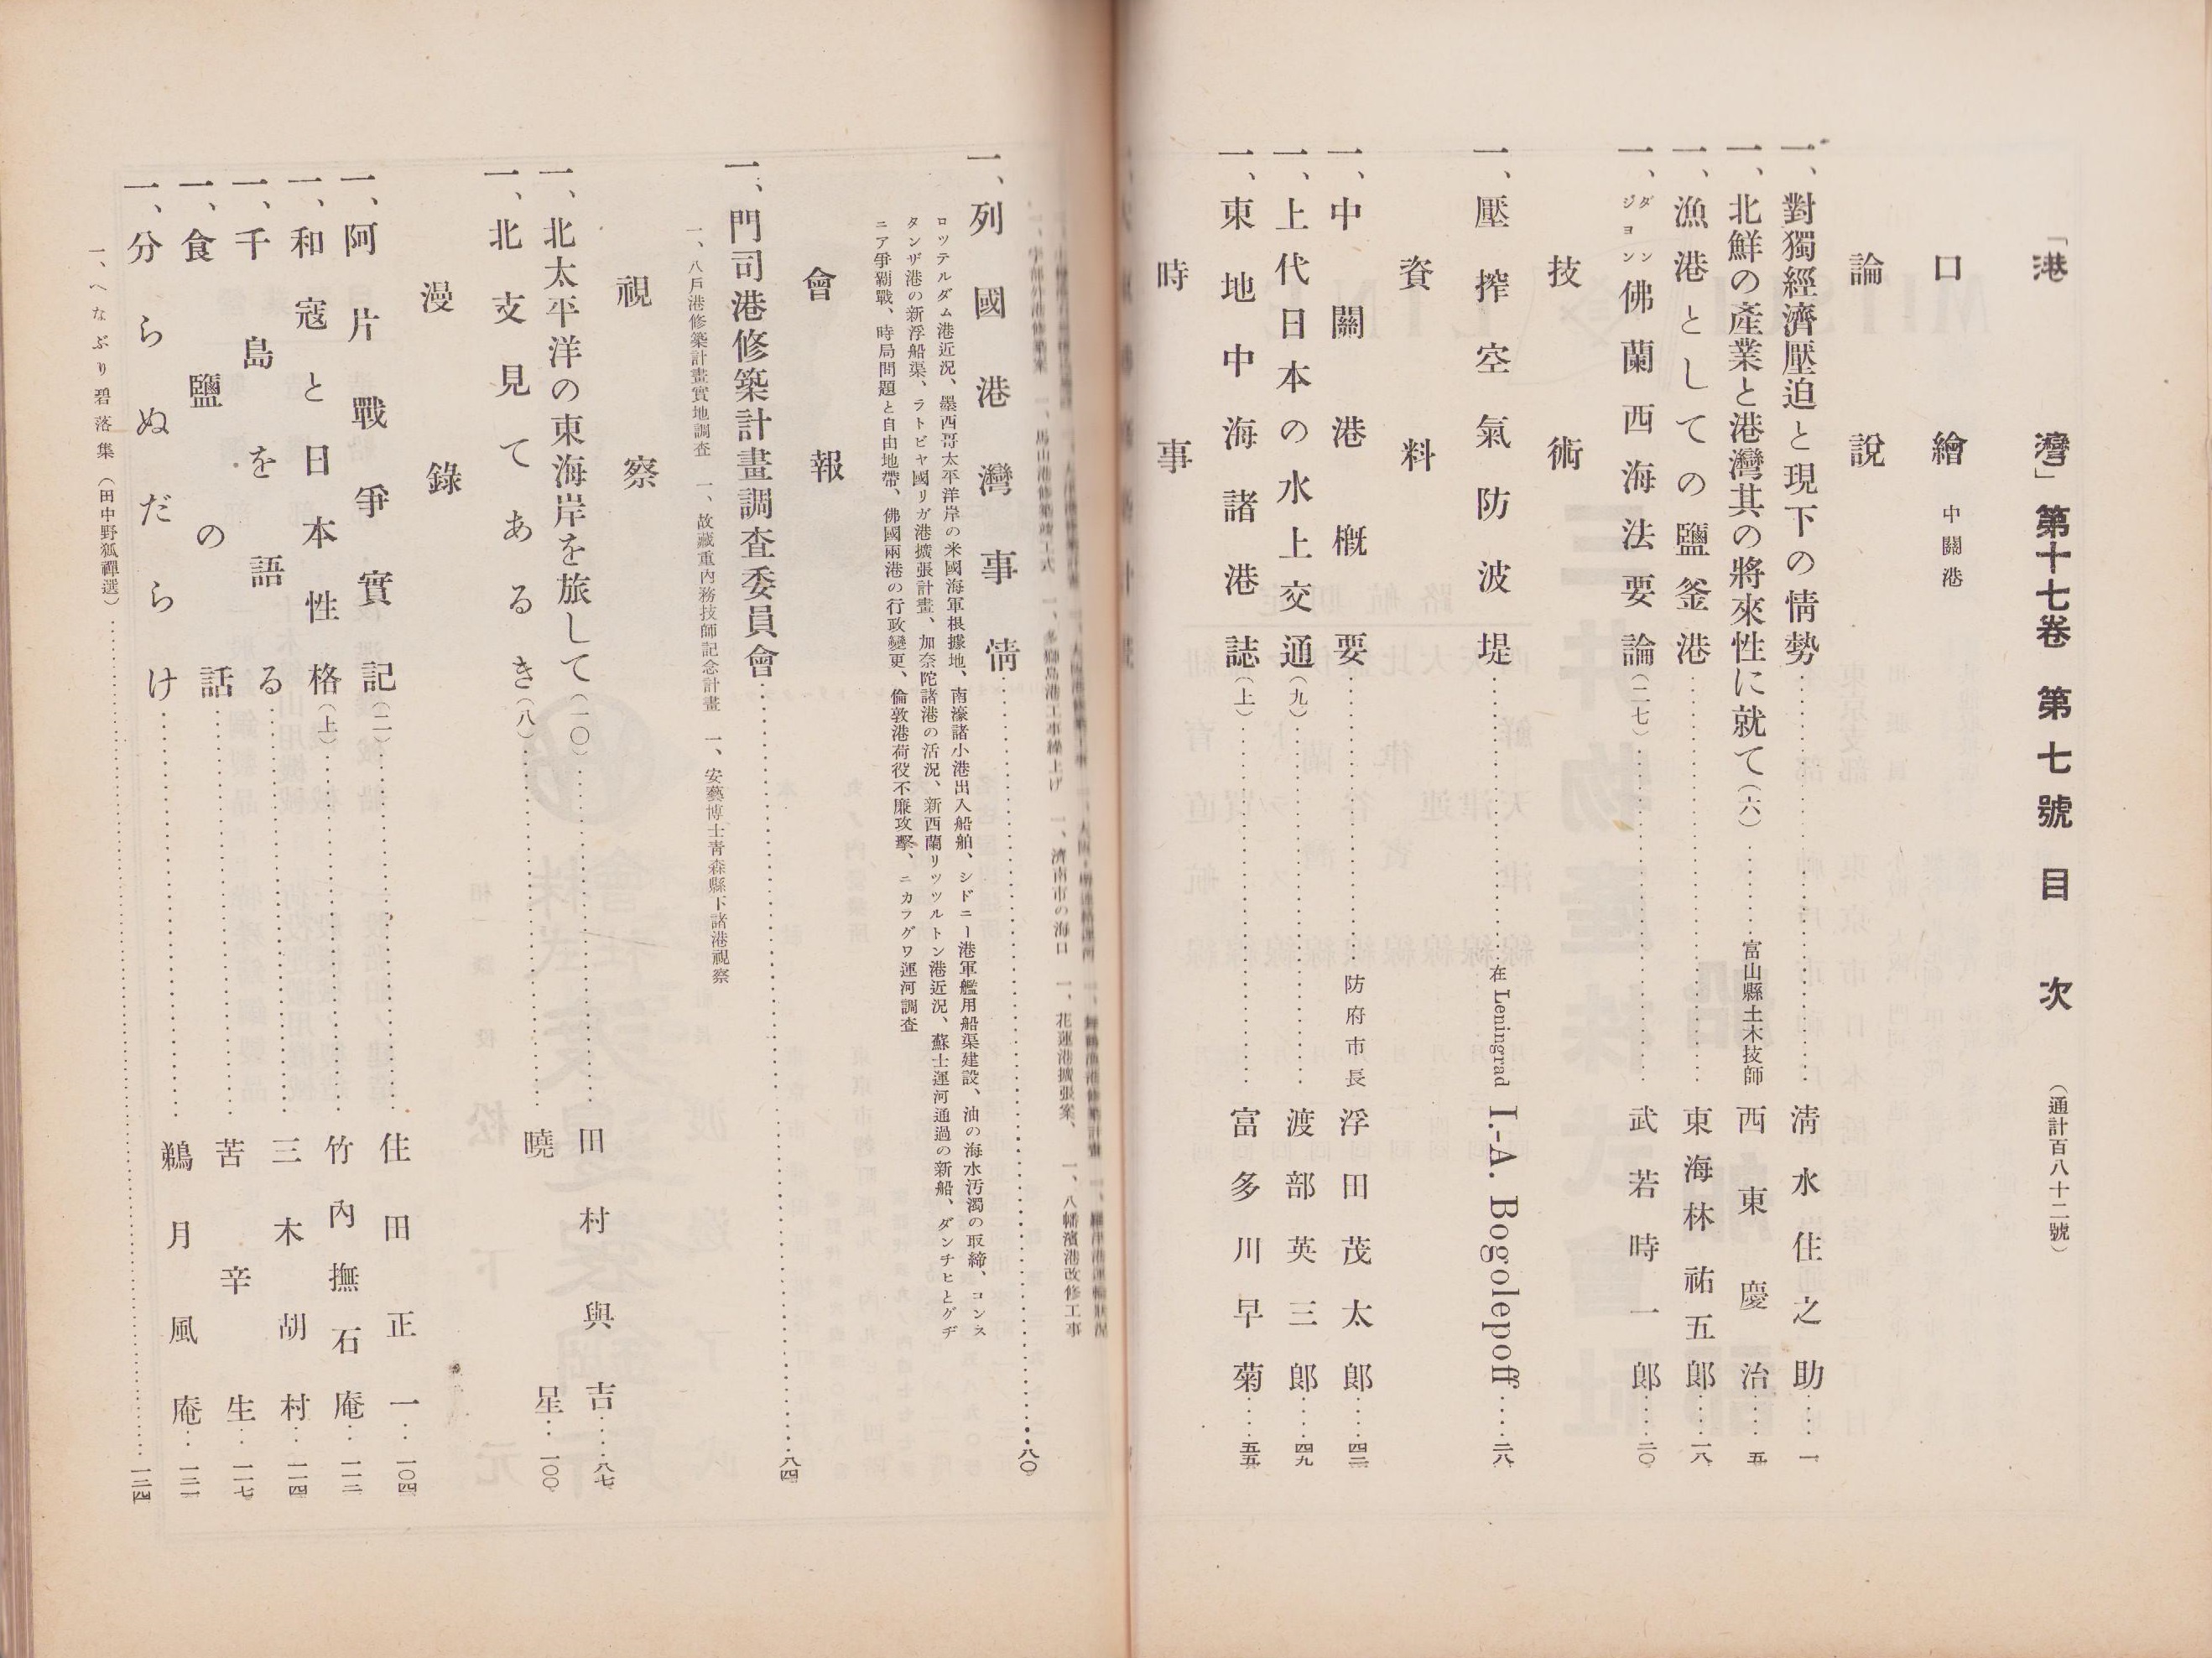 「港灣」第十七卷 第七號 目次 （通計百八十二號）
口繪 中關港
論說
一、對獨經濟壓迫と現下の情勢 淸水住之助 一
一、北鮮の產業と港灣其の將來性に就て（六） 富山縣土木技師 西東慶治 五
一、漁港としての鹽釜港 東海林祐五郎 一八
一、ダンジヨン佛蘭西海法要論（二七） 武若時一郎 二〇
技術
一、壓搾空氣防波堤 在Leningrad I.-A. Bogolepoff 二八
資料
一、中關港槪要 防府市長 浮田茂太郎 四二
一、上代日本の水上交通（九） 渡部英三郎 四九
一、東地中海諸港誌（上） 富多川早菊 五五
時事
一、馬山港修築竣工式 一、多獅島港工事繰上げ 一、濟南市の海口 一、花蓮港擴張案、 一、八幡濱港改修工事
一、列國港灣事情 八〇
ロツテルダム港近況、墨西哥太平洋岸の米國海軍根據地、南濠諸小港出入船舶、シドニー港軍艦用船渠建設、油の海水汚濁の取締、コンス
タンザ港の新浮船渠、ラトビヤ國リガ港擴張計畫、加奈陀諸港の活況、新西蘭リツツルトン港近況、蘇士運河通過の新船、ダンチヒとグヂ
ニア爭覇戰、時局問題と自由地帶、佛國兩港の行政變更、倫敦港荷役不廉攻擊、ニカラグワ運河調査
會報
一、門司港修築計畫調査委員會 八四
一、八戶港修築計畫實地調査 一、故藏重內務技師記念計畫 一、安藝博士靑森縣下諸港視察
視察
一、北太平洋の東海岸を旅して（一〇） 田村與吉 八七
一、北支見てあるき（八） 曉星 一〇〇
漫錄
一、阿片戰爭實記（二） 住田正一 一〇四
一、和寇と日本性格（上） 竹內撫石庵 一一二
一、千島を語る 三木胡村 一一四
一、食鹽の話 苦辛生 一一七
一、分らぬだらけ 鵜月風庵 一二一
一、へなぶり碧落集（田中野狐禪選） 一二四